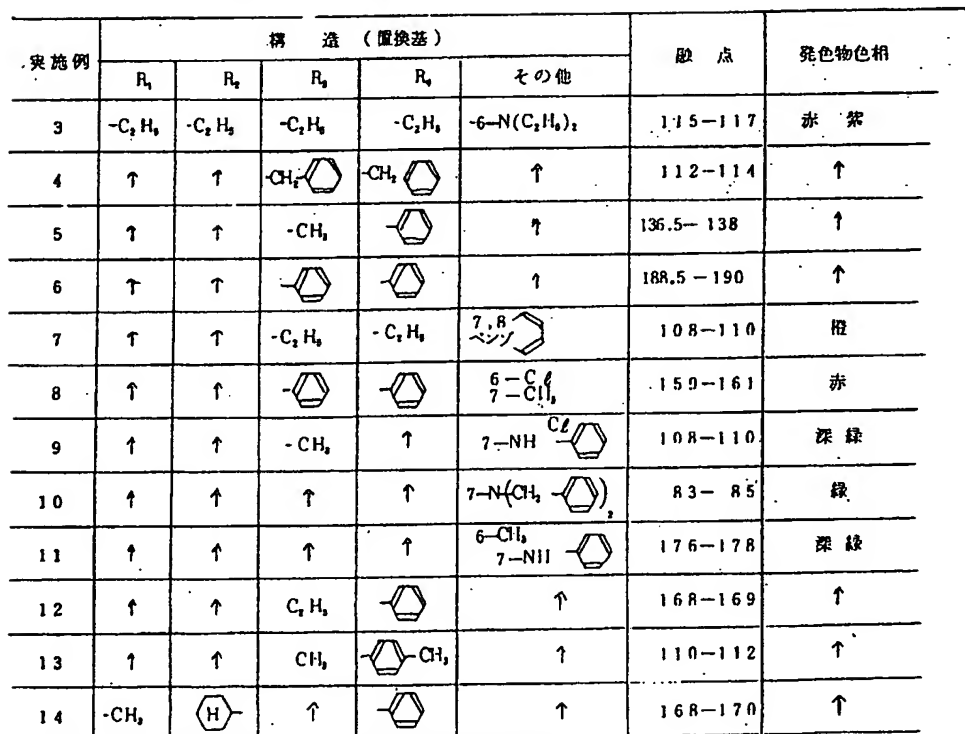 実施例 構 造 (置換基) 融 点 発色物色相
R₁ R₂ R₃ R₄ その他
3 -C₂H₅ -C₂H₅ -C₂H₅ -C₂H₅ -6-N(C₂H₅)₂ 115-117 赤 紫
4 ↑ ↑ -CH₂- -CH₂ ↑ 112-114 ↑
5 ↑ ↑ -CH₃ ↑ 136.5-138 ↑
6 ↑ ↑ ↑ 188.5-190 ↑
7 ↑ ↑ -C₂H₅ -C₂H₅ 7,8 ベンゾ 108-110 橙
8 ↑ ↑ 6-Cℓ 7-CH₃ 159-161 赤
9 ↑ ↑ -CH₃ ↑ 7-NH Cℓ 108-110 深緑
10 ↑ ↑ ↑ ↑ 7-N(CH₂- )₂ 83-85 緑
11 ↑ ↑ ↑ ↑ 6-CH₃ 7-NH 176-178 深緑
12 ↑ ↑ C₂H₅ ↑ 168-169 ↑
13 ↑ ↑ CH₃ -CH₃ ↑ 110-112 ↑
14 -CH₃ H ↑ ↑ 168-170 ↑